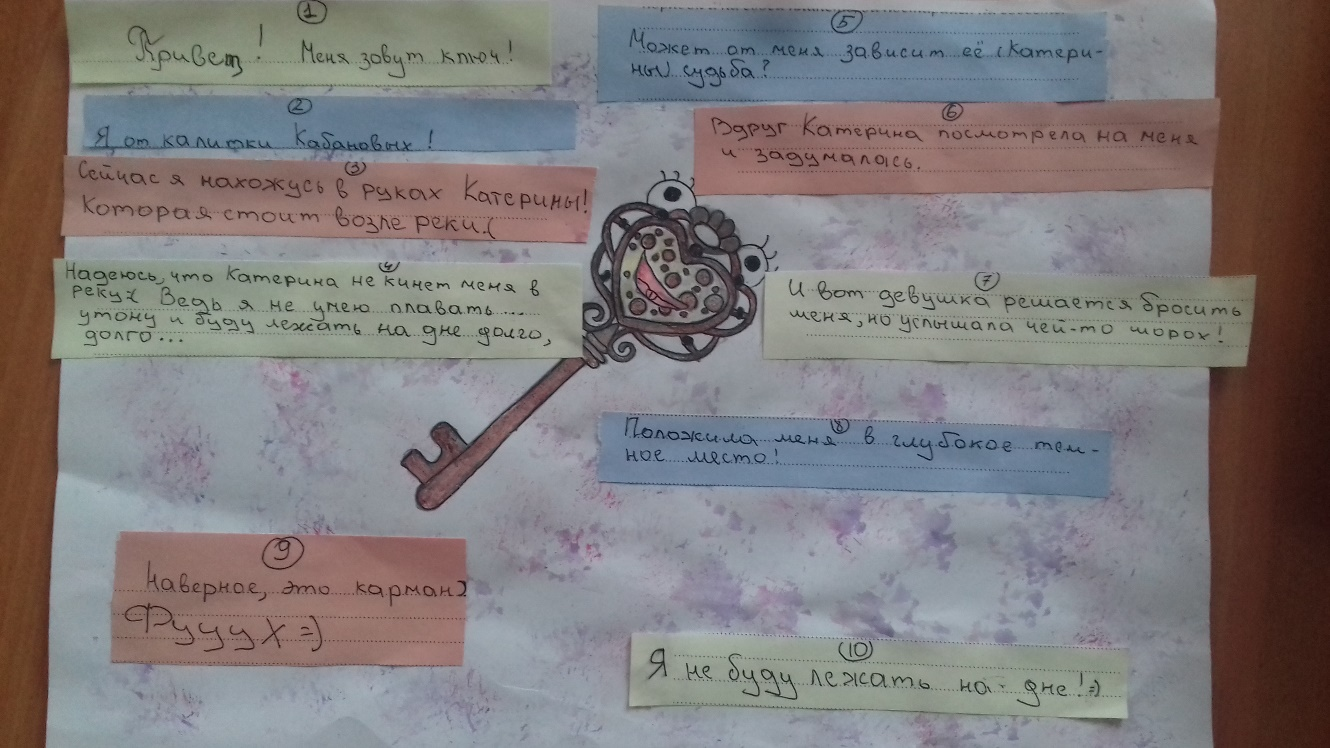 1
Привет! Меня зовут ключ!
2
Я от калитки Кабановых!
3
Сейчас я нахожусь в руках Катерины!
Которая стоит возле реки.(
4
Надеюсь, что Катерина не кинет меня в
реку?( Ведь я не умею плавать...
утону и буду лежать на дне долго,
долго...
5
Может от меня зависит её (Катери-
ны) судьба?
6
Вдруг Катерина посмотрела на меня
и задумалась.
7
И вот девушка решается бросить
меня, но услышала чей-то шорох!
8
Положила меня в глубокое тем-
ное место!
9
Наверное, это карман?
Фуууух =)
10
Я не буду лежать на дне! =)